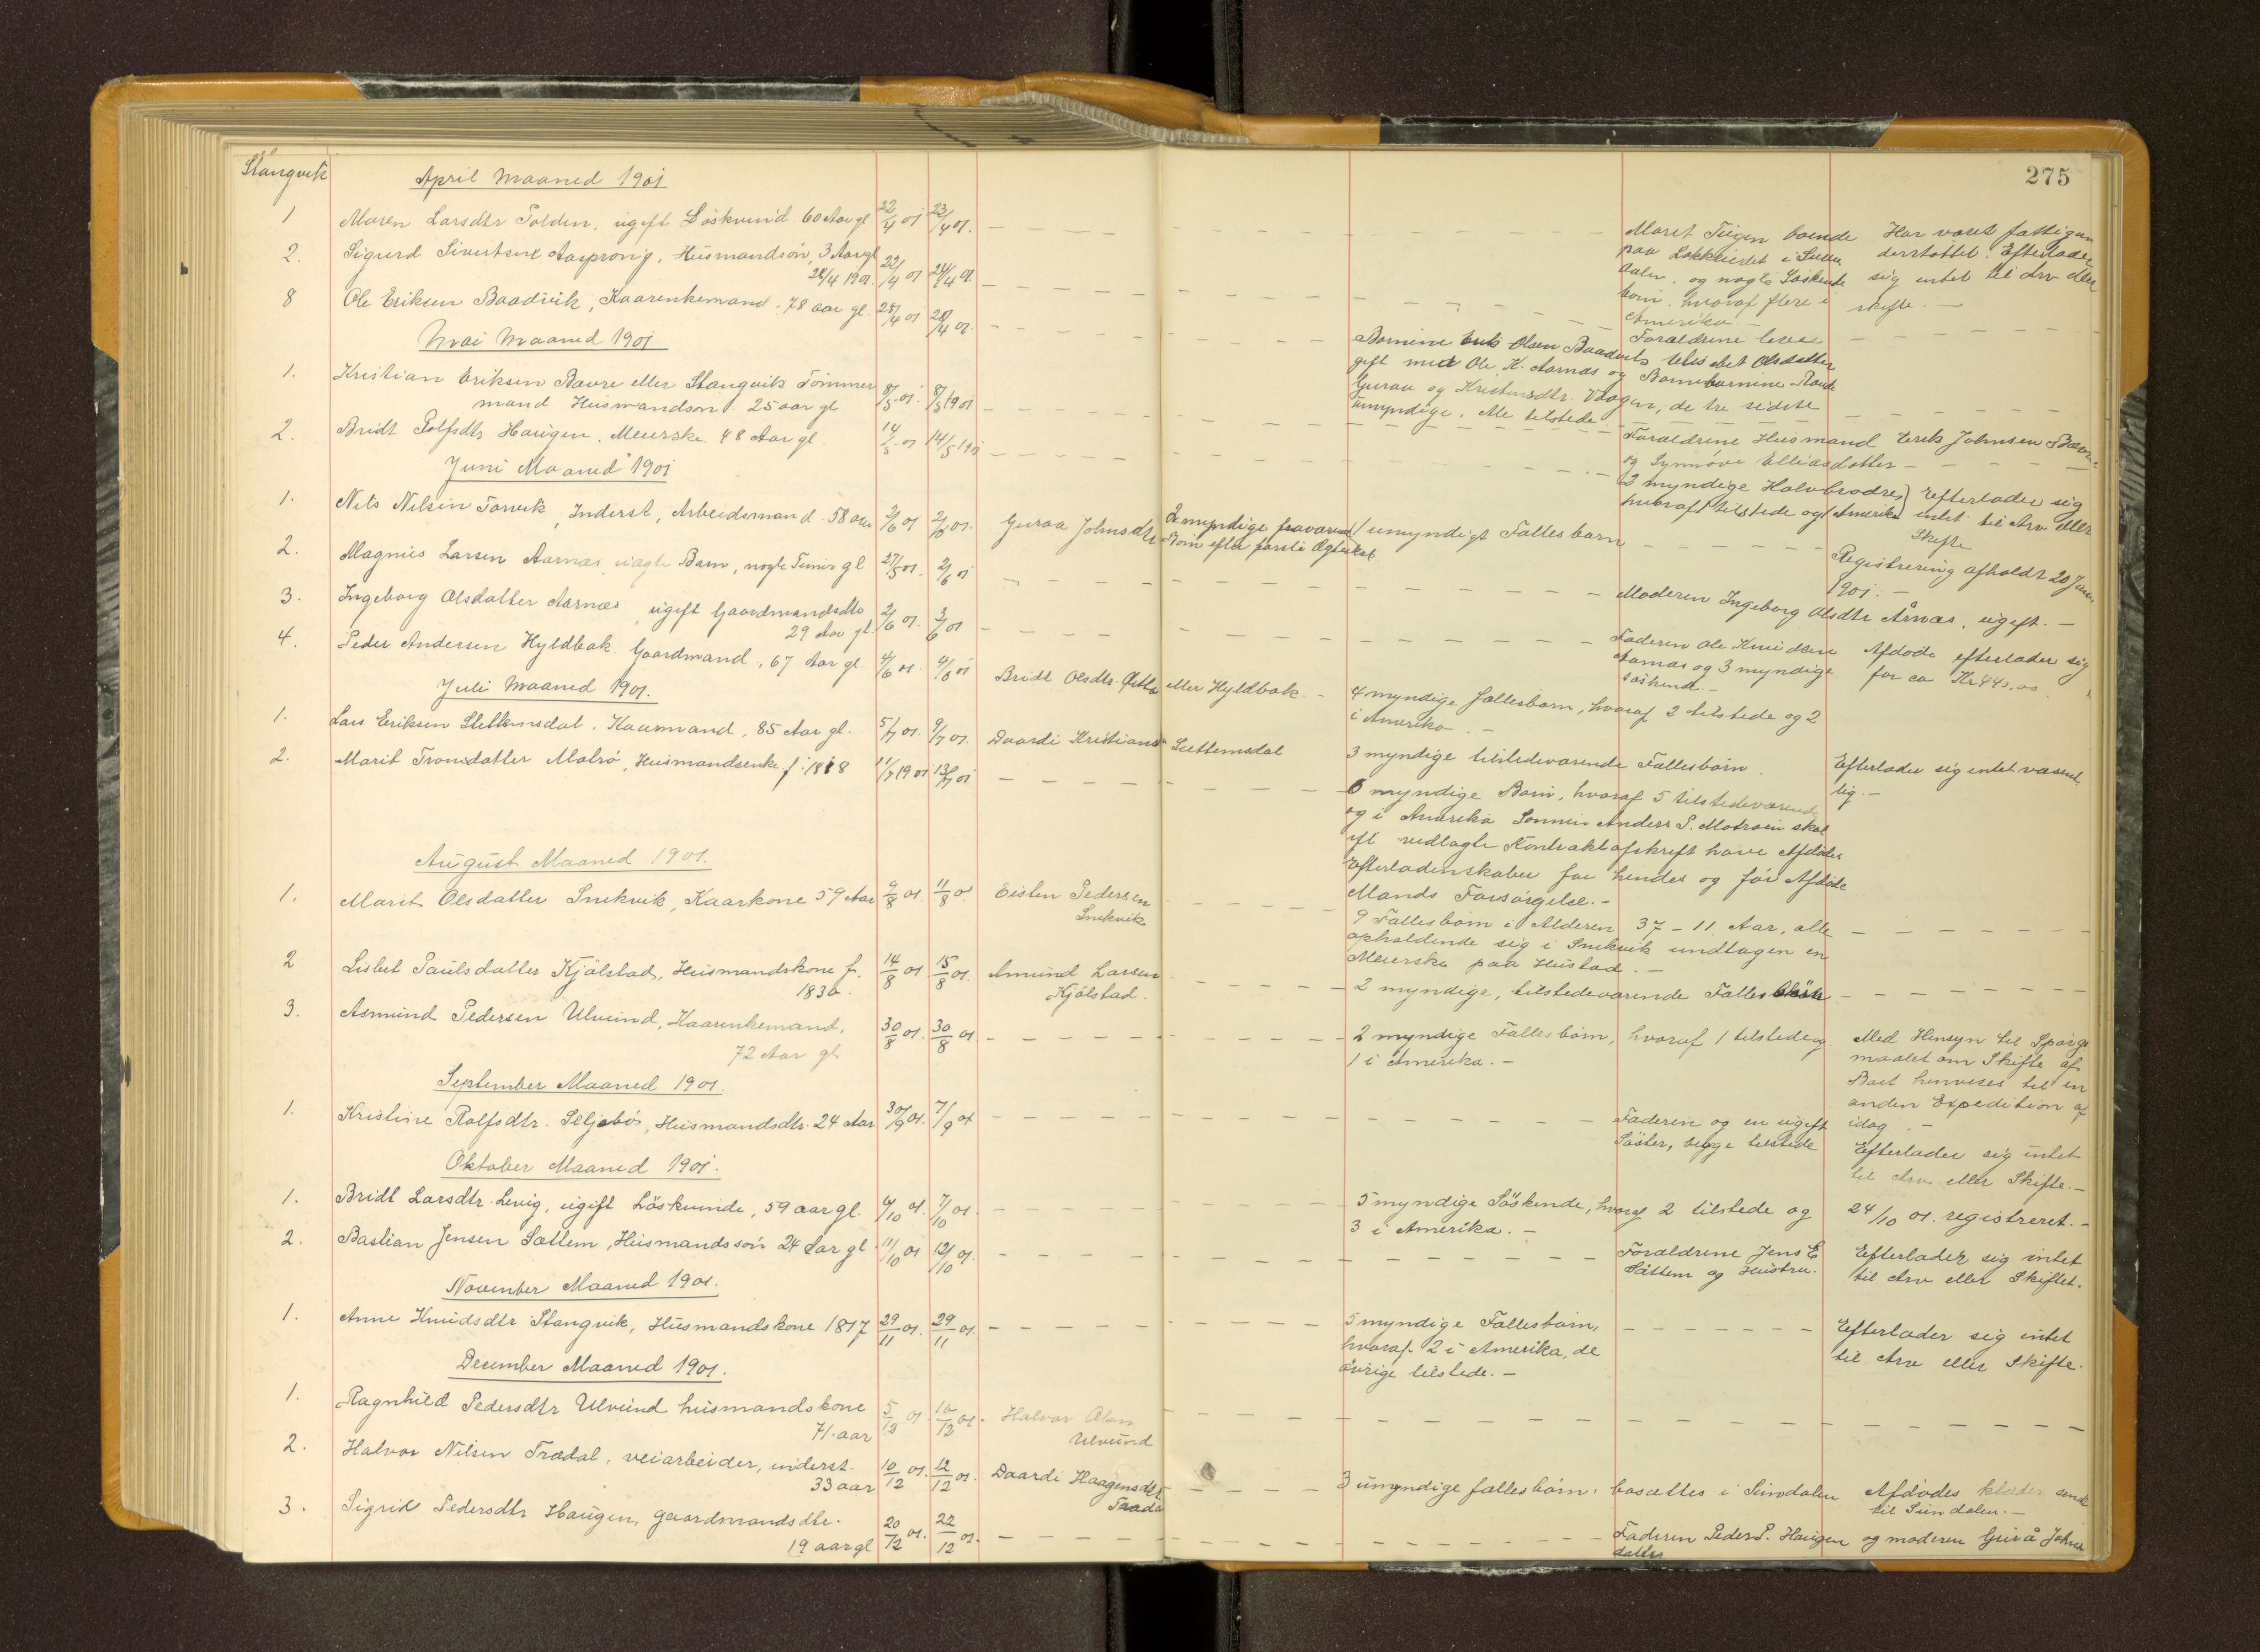 275
Stangvik
April Maaned 1901
1 Maren Larsdtr Polden, ugift Löskvind 60 Aar gl 22/4 01 23/4 01. Maret boende Har været fattigun
paa i derstøttet. Efterlader
dalen, og nogle Söskende sig intet til Arv eller
som, hvoraf flere i skifte. —
Amerika. —
2. Sigurd Sivertsen Aasprong, Husmandsön, 3 Aar gl
24/4 1901. 22/4 01 24/4 01 Forældrene lever
8 Ole Eriksen Baadvik, Kaarenkemand. 78 aar gl. 28/4 01 28/4 01. Börnene Erik Olsen Baadvik, Olsdatter
gift med Ole K. Aarnæs og Barnebörnene
Guraa og Kristensdtr. Vaagen, de tre sidste
umyndige. Alle tilstede.
Mai Maaned 1901
1. Kristian Eriksen Bævre eller Stangvik Tömmer
mand Husmandson. 25 aar gl 8/5 01. 8/5 1901 Forældrene Husmand Erik Johnsen Bævre
og Synnöve Elliasdatter —
2. Bridt Rolfsdtr Haugen, Meierske 48 Aar gl. 14/5 01 14/5 1901 2 myndige Halvbrødre, Efterlader sig
hvoraf 1 tilstede og 1 Amerika intet til Arv eller
Skifte
Juni Maaned 1901
1. Nils Nilsen Torvik, Inderst, Arbeidsmand 58 aar 2/6 01 2/6 01. Guraa Johnsdtr 2 myndige fraværend 1 umyndigt Fælles barn Registrering afholdt 20 Juni
Börn efter første Ægteskab. 1901. —
2. Magnus Larsen Aarnæs, uægte Barn, nogle Timer gl 27/5 01. 2/6 01 Moderen Ingeborg Olsdtr Årnæs, ugift. —
3. Ingeborg Olsdatter Aarnæs, ugift Gaardmandsdtr
29 Aar gl. 2/6 01. 3/6 01 Faderen Ole Knudsen Afdøde efterlader sig
Aarnæs og 3 myndige for ca Kr 440,00
söskende. —
4. Peder Andersen Hyldbak, Gaardmand, 67 Aar gl. 4/6 01. 4/6 01 Bridt Olsdtr. eller Hyldbak. — 4 myndige fællesbörn, hvoraf 2 tilstede og 2
i Amerika. —
Juli Maaned 1901.
1. Lars Eriksen Slettemsdal, Kaarmand, 85 Aar gl. 5/7 01. 9/7 01. Daardi Kristiansd 3 myndige tilstedeværende Fællesbörn. Efterlader sig intet væsent
lig. —
2. Marit Tronsdatter Malrö, Husmandsenke f. 1818 11/7 1901 13/7 01 6 myndige Börn, hvoraf 5 tilstedeværende
og 1 Amerika Sönnen Anders P. skal
ifl vedlagte Kontraktafskrift have Afdödes
Efterladenskaber for hendes og for Afdöde
Mands Forsörgelse. —
August Maaned 1901.
1. Marit Olsdatter Snekvik, Kaarkone 59 Aar 9/8 01. 11/8 01 Eislen Pedersen
Snekvik 9 Fællesbörn i Alderen 37 – 11 Aar, alle
opholdende sig i Snekvik undtagen en
Meierske paa Hustad. —
2 Lisbet Paulsdatter Kjölstad, Husmandskone f.
1830. 14/8 01. 15/8 01. Amund Larsen
Kjölstad. 2 myndige, tilstedeværende Fælles
3. Asmund Pedersen Ulvund, Kaarenkemand,
72 Aar gl. 30/8 01. 30/8 01 2 myndige Fællesbörn, hvoraf 1 tilstede og Med Hensyn til Spörgs
1 i Amerika. — maalet om Skifte af
Boet henvises til en
anden Expedition af
idag. —
September Maaned 1901.
1. Kristine Rolfsdtr. Seljebö, Husmandsdtr. 24 Aar 7/9 01 Faderen og en ugift Efterlader sig intet
Söster, begge tilstede til Arv eller Skifte. —
Oktober Maaned 1901.
1. Bridt Larsdtr. Levig, ugift Löskvinde, 59 aar gl. 6/10 01. 7/10 01. 5 myndige Söskende, hvoraf 2 tilstede og 24/10 01. registreret. —
3 i Amerika. —
2. Bastian Jensen Sættem, Husmandssön 24 Aar gl 11/10 01 12/10 01. Forældrene Jens E Efterlader sig intet
Sættem og Hustru. til Arv eller Skiftet.
November Maaned 1901.
1. Anne Knudsdtr Stangvik, Husmandskone 1817 29/11 01. 29/11 01. 5 myndige Fællesbörn, Efterlader sig intet
hvoraf 2 i Amerika, de til Arv eller Skifte.
övrige tilstede. —
December Maaned 1901.
1. Ragnhild Pedersdtr Ulvund husmandskone
71. aar 5/12 01 10/12 01. Halvor Olsen
Ulvund
2. Halvor Nilsen Trædal, veiarbeider, inderst.
33 aar 10/12 01. 12/12 01. Daardi Haagensdtr 3 umyndige fællesbörn. bosættes i Sundalen Afdödes klæder sendt
til Sundalen. —
3. Sigrid Pedersdtr Haugen, gaardmandsdtr.
19 aar gl 20/12 01. 22/12 01. Faderen Peder P. Haugen og moderen Gurå Johns
datter